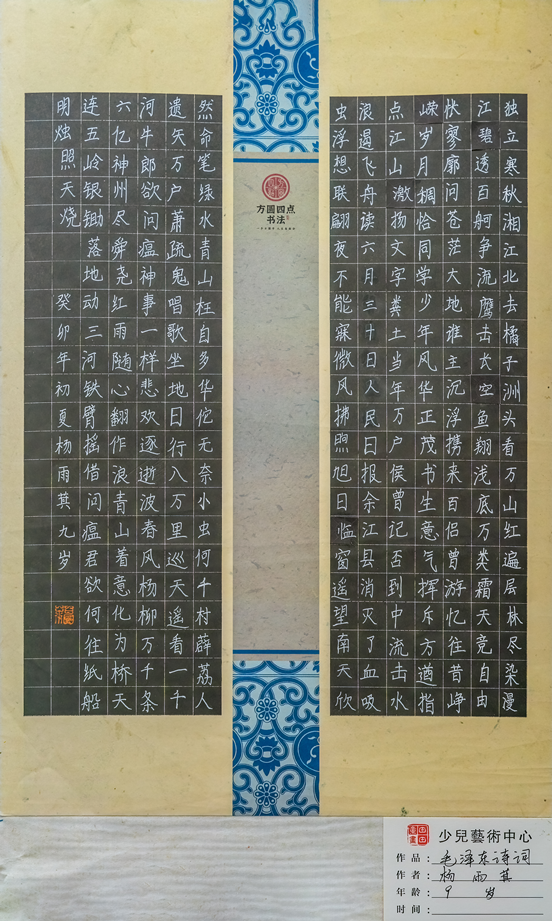 独立寒秋湘江北去橘子洲头看万山红遍层林尽染漫
江碧透百舸争流鹰击长空鱼翔浅底万类霜天竞自由
怅寥廓问苍茫大地谁主沉浮携来百侣曾游忆往昔峥
嵘岁月稠恰同学少年风华正茂书生意气挥斥方遒指
点江山激扬文字粪土当年万户侯曾记否到中流击水
浪遏飞舟读六月三十日人民日报余江县消灭了血吸
虫浮想联翩夜不能寐微风拂煦旭日临窗遥望南天欣
方圓四点
书法
然命笔绿水青山枉自多华佗无奈小虫何千村薜荔人
遗矢万户萧疏鬼唱歌坐地日行八万里巡天遥看一千
河牛郎欲问瘟神事一样悲欢逐逝波春风杨柳万千条
六亿神州尽舜尧红雨随心翻作浪青山着意化为桥天
连五岭银锄落地动三河铁臂摇借问瘟君欲何往纸船
明烛照天烧 癸卯年初夏杨雨其九岁
少兒藝術中心
作品：毛泽东诗词
作者：杨雨其
年龄：9岁
时间：